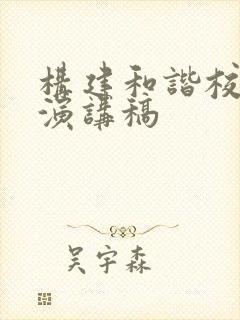 構建和諧校
演講稿
吴宇森